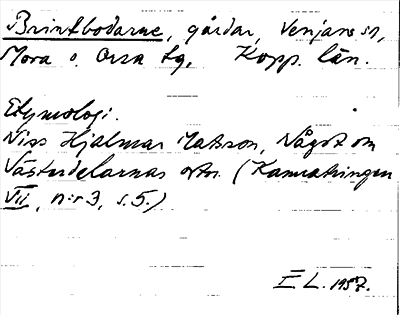 Brintbodarne, gårdar, Venjans sn,
Mora o. Orsa tg, Kopp. län.
Etymologi.
Niss Hjalmar Matsson, Något om
Västerdalarnas ortn. (Kamratringen
VII, n:r 3, s. 5.)
E L. 1957.